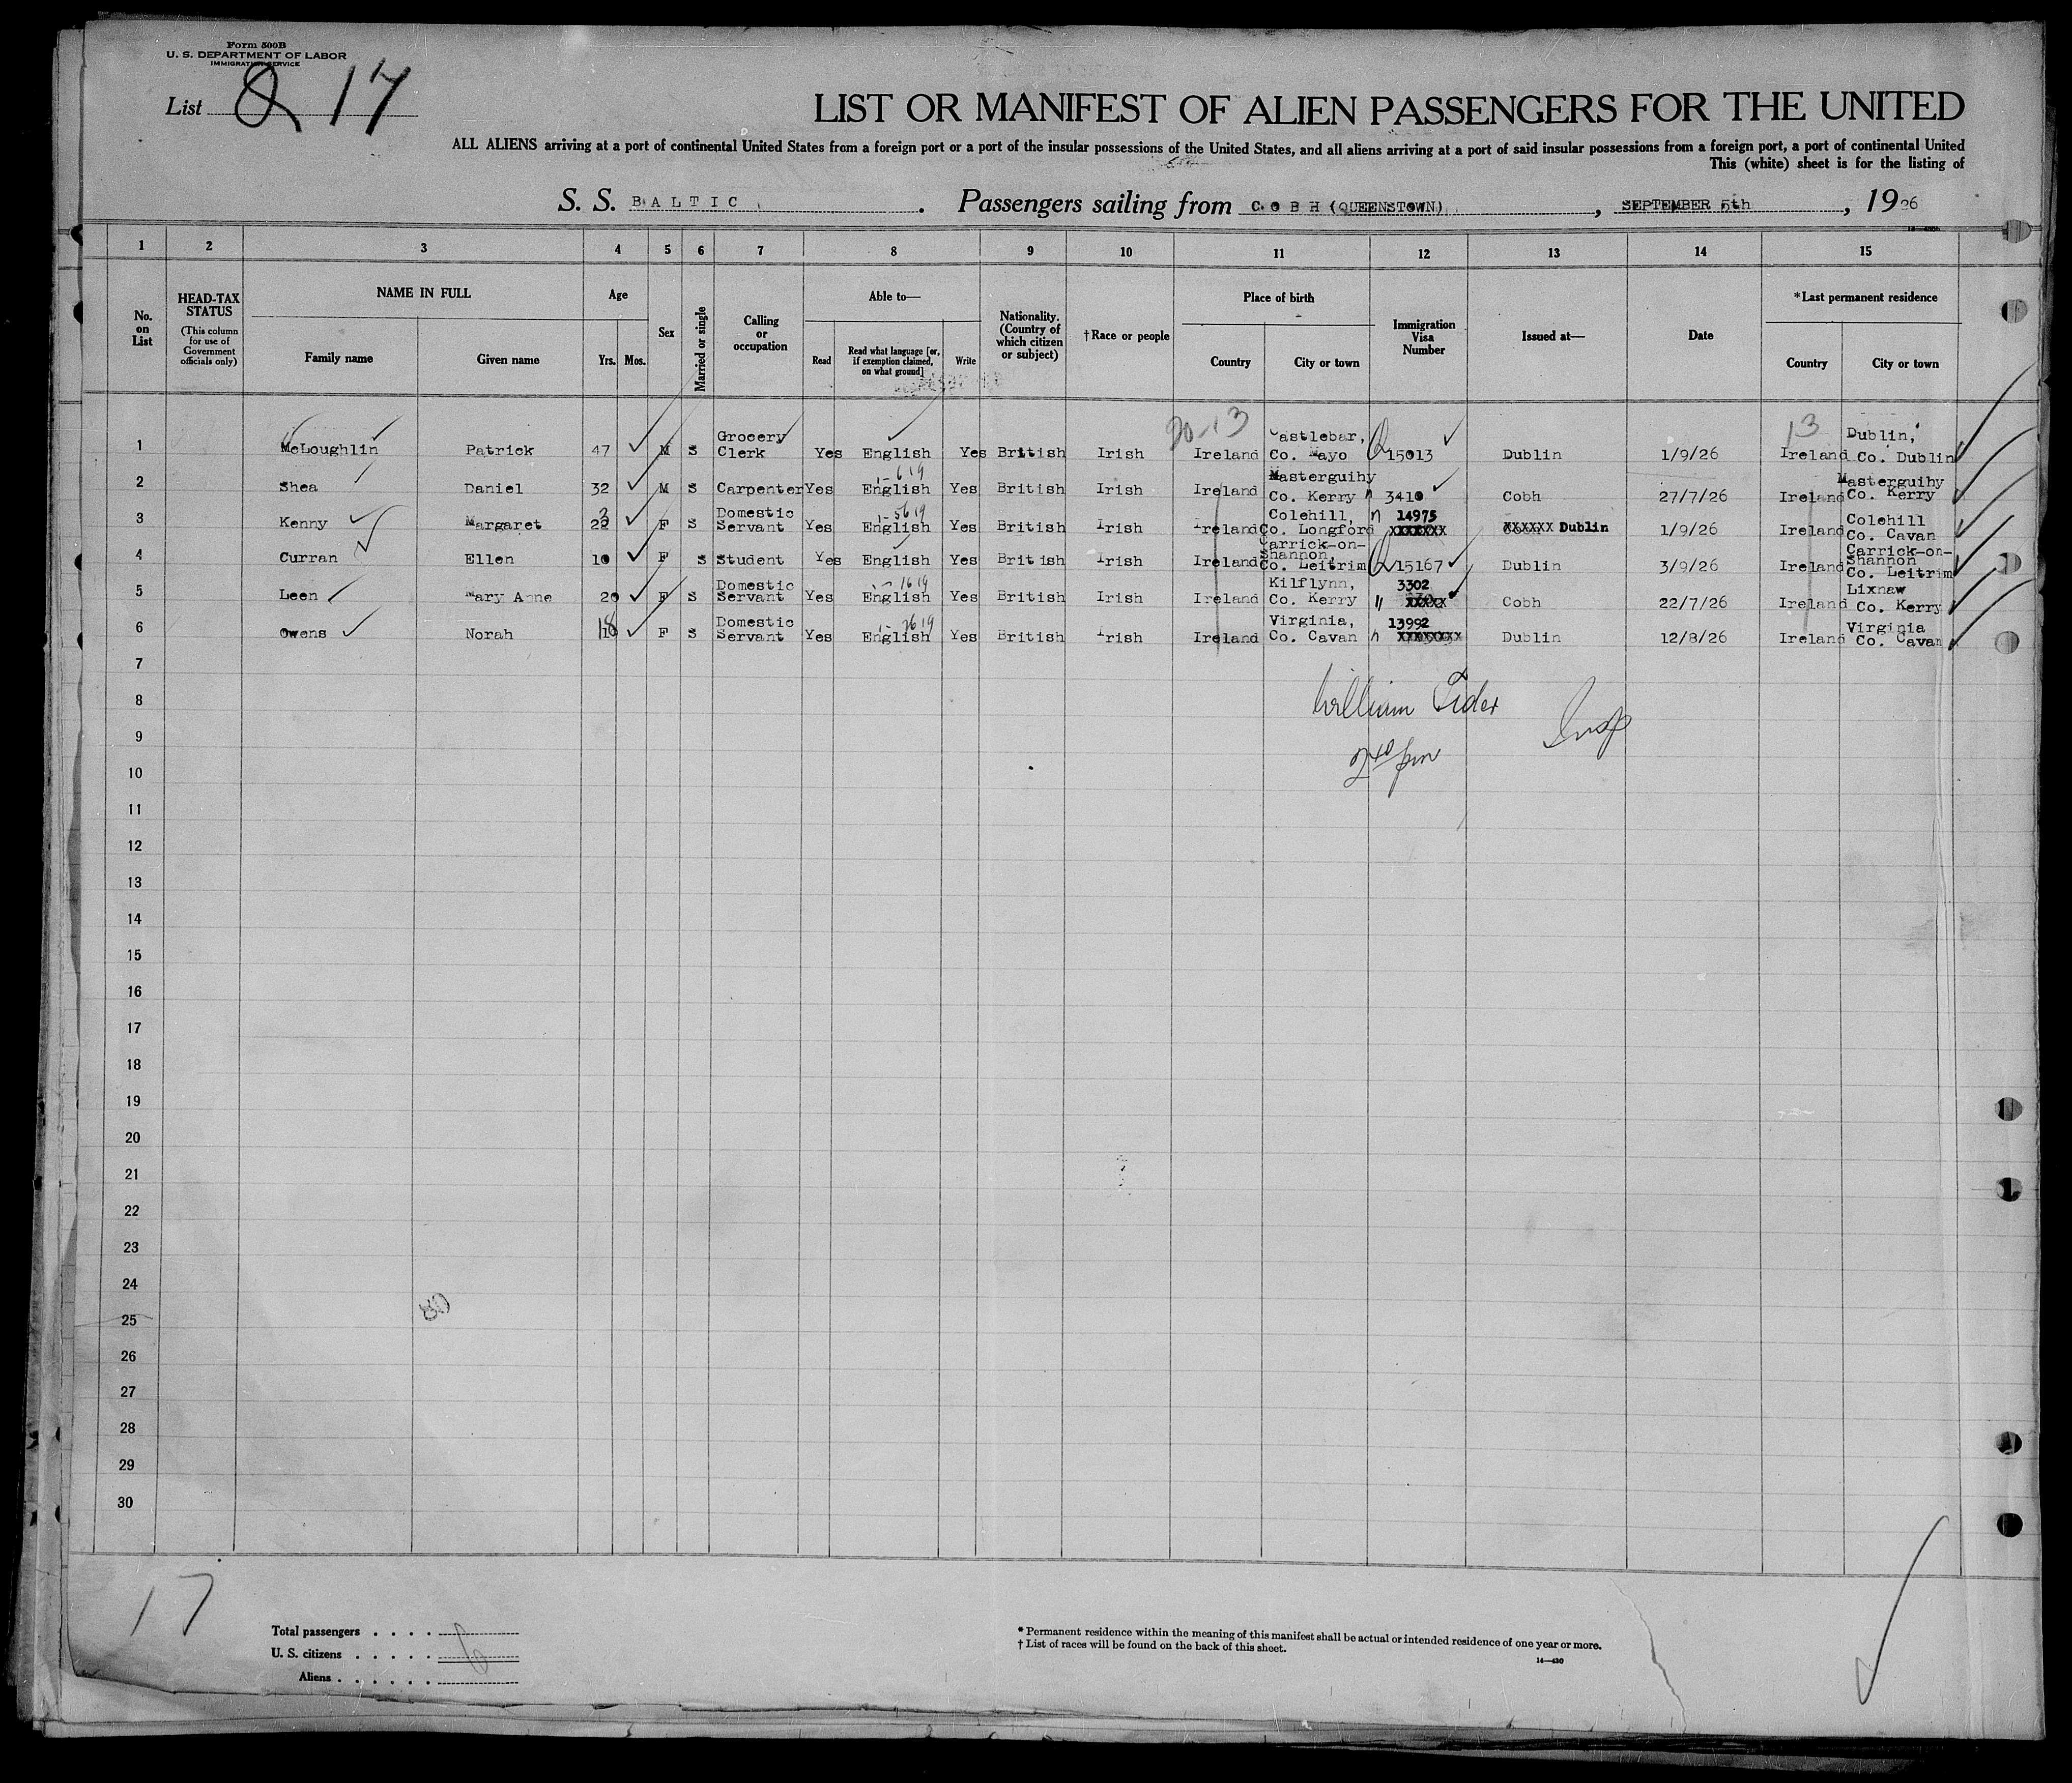 Form 500B
U. S. DEPARTMENT OF LABOR
IMMIGRATION SERVICE
List 17
LIST OR MANIFEST OF ALIEN PASSENGERS FOR THE UNITED
ALL ALIENS arriving at a port of continental United States from a foreign port or a port of the insular possessions of the United States, and all aliens arriving at a port of said insular possessions from a foreign port, a port of continental United
This (white) sheet is for the listing of
S. S. BALTIC. Passengers sailing from COBH (QUEENSTOWN), SEPTEMBER 5th, 1926
1 2 3 4 5 6 7 8 9 10 11 12 13 14 15
No. on List
HEAD-TAX STATUS
(This column for use of Government officials only)
NAME IN FULL
Family name Given name
Age
Yrs. Mos.
Sex
Married or single
Calling or occupation
Able to—
Read Read what language [or, if exemption claimed, on what ground] Write
Nationality. (Country of which citizen or subject)
†Race or people
Place of birth
Country City or town
Immigration Visa Number
Issued at—
Date
*Last permanent residence
Country City or town
20-13 13
1 McLoughlin Patrick 47 M S Grocery Clerk Yes English Yes British Irish Ireland Castlebar, Co. Mayo 15013 Dublin 1/9/26 Ireland Dublin, Co. Dublin
2 Shea Daniel 32 M S Carpenter Yes English Yes British Irish Ireland Masterguihy Co. Kerry " 3410 Cobh 27/7/26 Ireland Masterguihy Co. Kerry
3 Kenny Margaret F S Domestic Servant Yes English Yes British Irish Ireland Colehill, Co. Longford " 14975 XXXXXX XXXXXX Dublin 1/9/26 Ireland Colehill Co. Cavan
4 Curran Ellen 10 F S Student Yes English Yes British Irish Ireland Carrick-on-Shannon, Co. Leitrim 15167 Dublin 3/9/26 Ireland Carrick-on-Shannon Co. Leitrim
5 Leen Mary Anne 20 F S Domestic Servant Yes English Yes British Irish Ireland Kilflynn, Co. Kerry " 3302 XXXXX Cobh 22/7/26 Ireland Lixnaw Co. Kerry
6 Owens Norah 18 F S Domestic Servant Yes English Yes British Irish Ireland Virginia, Co. Cavan " 13992 XXXXXXXX Dublin 12/8/26 Ireland Virginia Co. Cavan
7
8 William
9 Insp
10 2 40 pm
11
12
13
14
15
16
17
18
19
20
21
22
23
24
25
26
27
28
29
30
17
Total passengers . . . .
U. S. citizens . . . . . 6
Aliens . . . . . .
* Permanent residence within the meaning of this manifest shall be actual or intended residence of one year or more.
† List of races will be found on the back of this sheet.
14—430